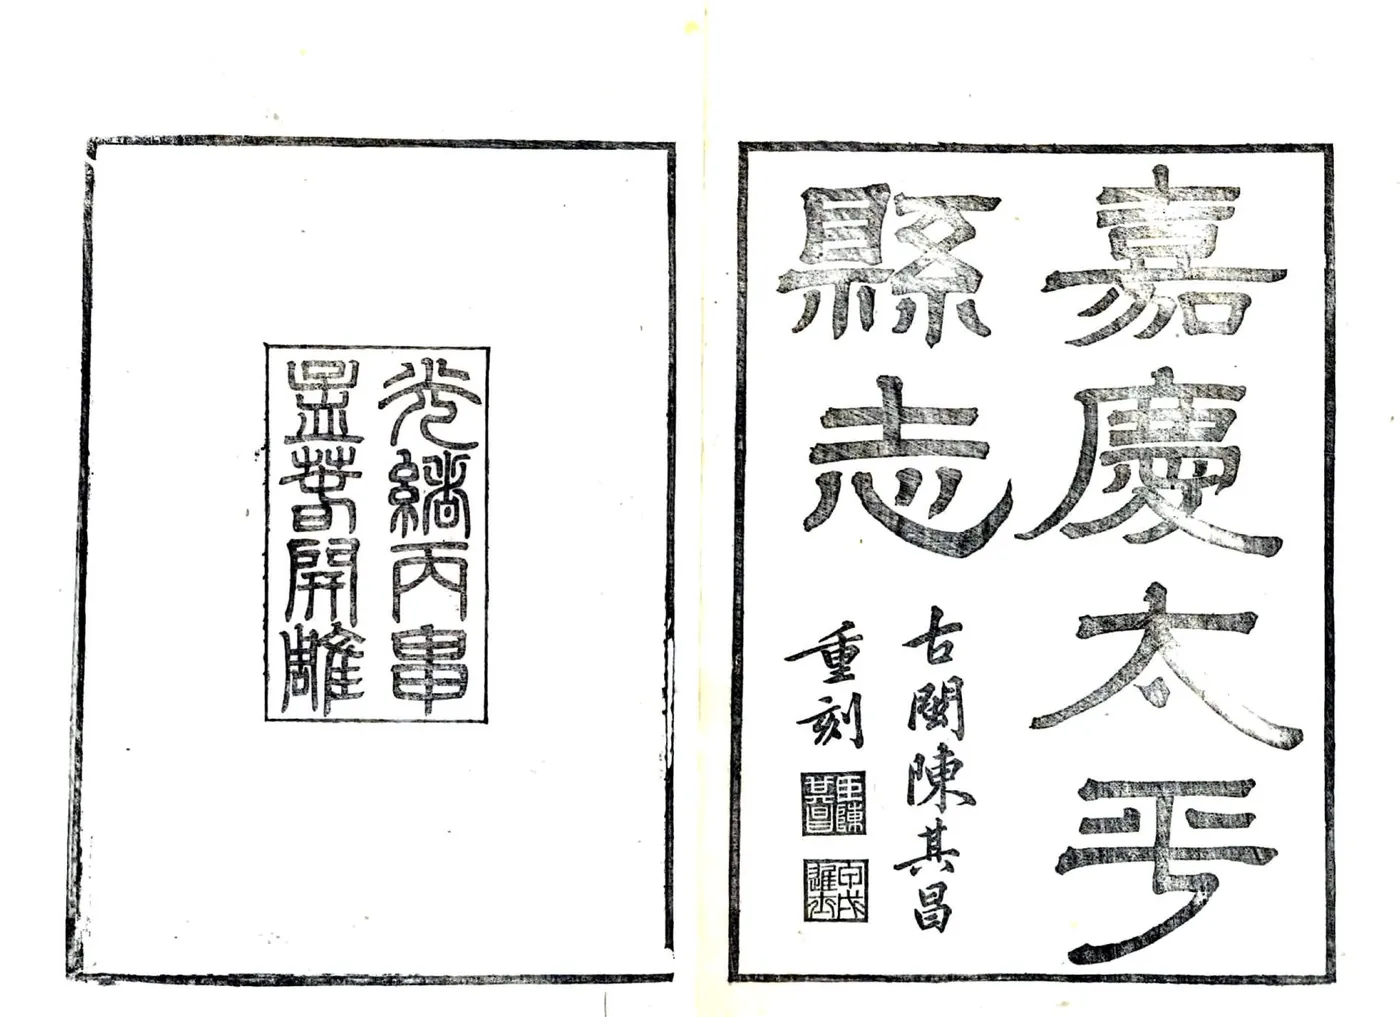 嘉慶太平
縣志
古閩陳其昌
重刻
臣陳
其昌
甲戌
進士
光緒丙申
孟春開雕